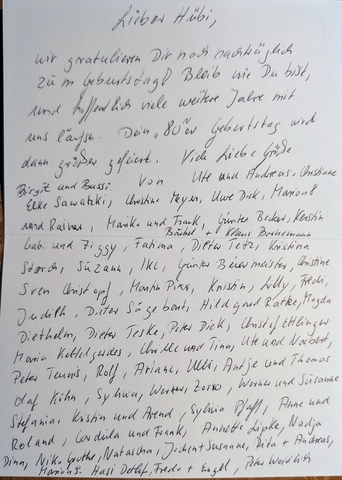 Lieber Hübi,
wir gratulieren Dir noch nachträglich
zum Geburtstag! Bleib wie Du bist,
und hoffentlich viele weitere Jahre mit
uns läufst. Dein "80"er Geburtstag wird
dann größer gefeiert. Viele Liebe Grüße
Birgit und Bussi. von Ute und Andreas, Christiane
Elke Sawatzki, Christine Meyer, Uwe Dick, Marion
und Rainer, Mariko und Frank, Günter Becker, Kerstin
Bübel + Klaus Bornemann
Gabi und Ziggy, Fatima, Dieter Tetz, Kristina
Storch, Süzann, Iki, Günter Biermeister, Christine
Sven Christopf, Martin Pixx, Kristin, Lilly, Fredi,
Judith, Dieter Sägebart, Hildegard Ratke, Magda
Diethelm, Dieter Teske, Peter Dick, Christof Ettlinger
Maria und Tina, Ute und Norbert,
Peter Rolf, Ariane, Ulli, Antje und Thomas
Olaf Kühn, Sylvia, Werner Werner und Susanne
Stefanie, Kristin und Arend, Sylvia Pfaff, Anne und
Roland, Cordula und Frank, Annette Lipke, Nadja
Dina, Niko Natascha, Jochen + Susanne, Rita + Andreas,
Hasi Detlef, Fredo + Engel, Peter